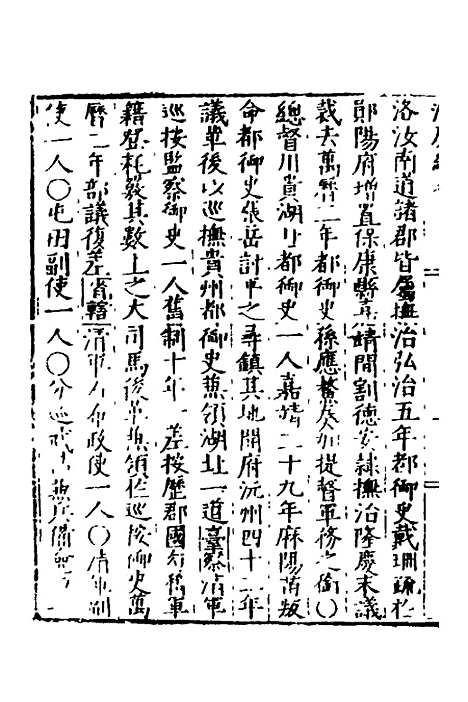 洛汝南道諸郡皆屬撫治弘治五年都御史戴珊疏於
鄖陽府增置保康縣嘉靖間割德安隸撫治隆慶末議
裁去萬曆二年都御史孫應鰲奏加提督軍務之銜〇
總督川貴湖北都御史一人嘉靖二十九年麻陽苗叛
命都御史張岳討平之尋鎮其地開府沅州四十二年
議革後以巡撫貴州都御史兼領湖北一道臺察清軍
巡按監察御史一人舊制十年一差按歷郡國勾稽軍
籍登耗覈其數上之大司馬後革兼領於巡按御史萬
曆二年部議復差省轄清軍右布政使一人〇清軍副
使一人〇屯田副使一人〇分巡武昌兼兵備